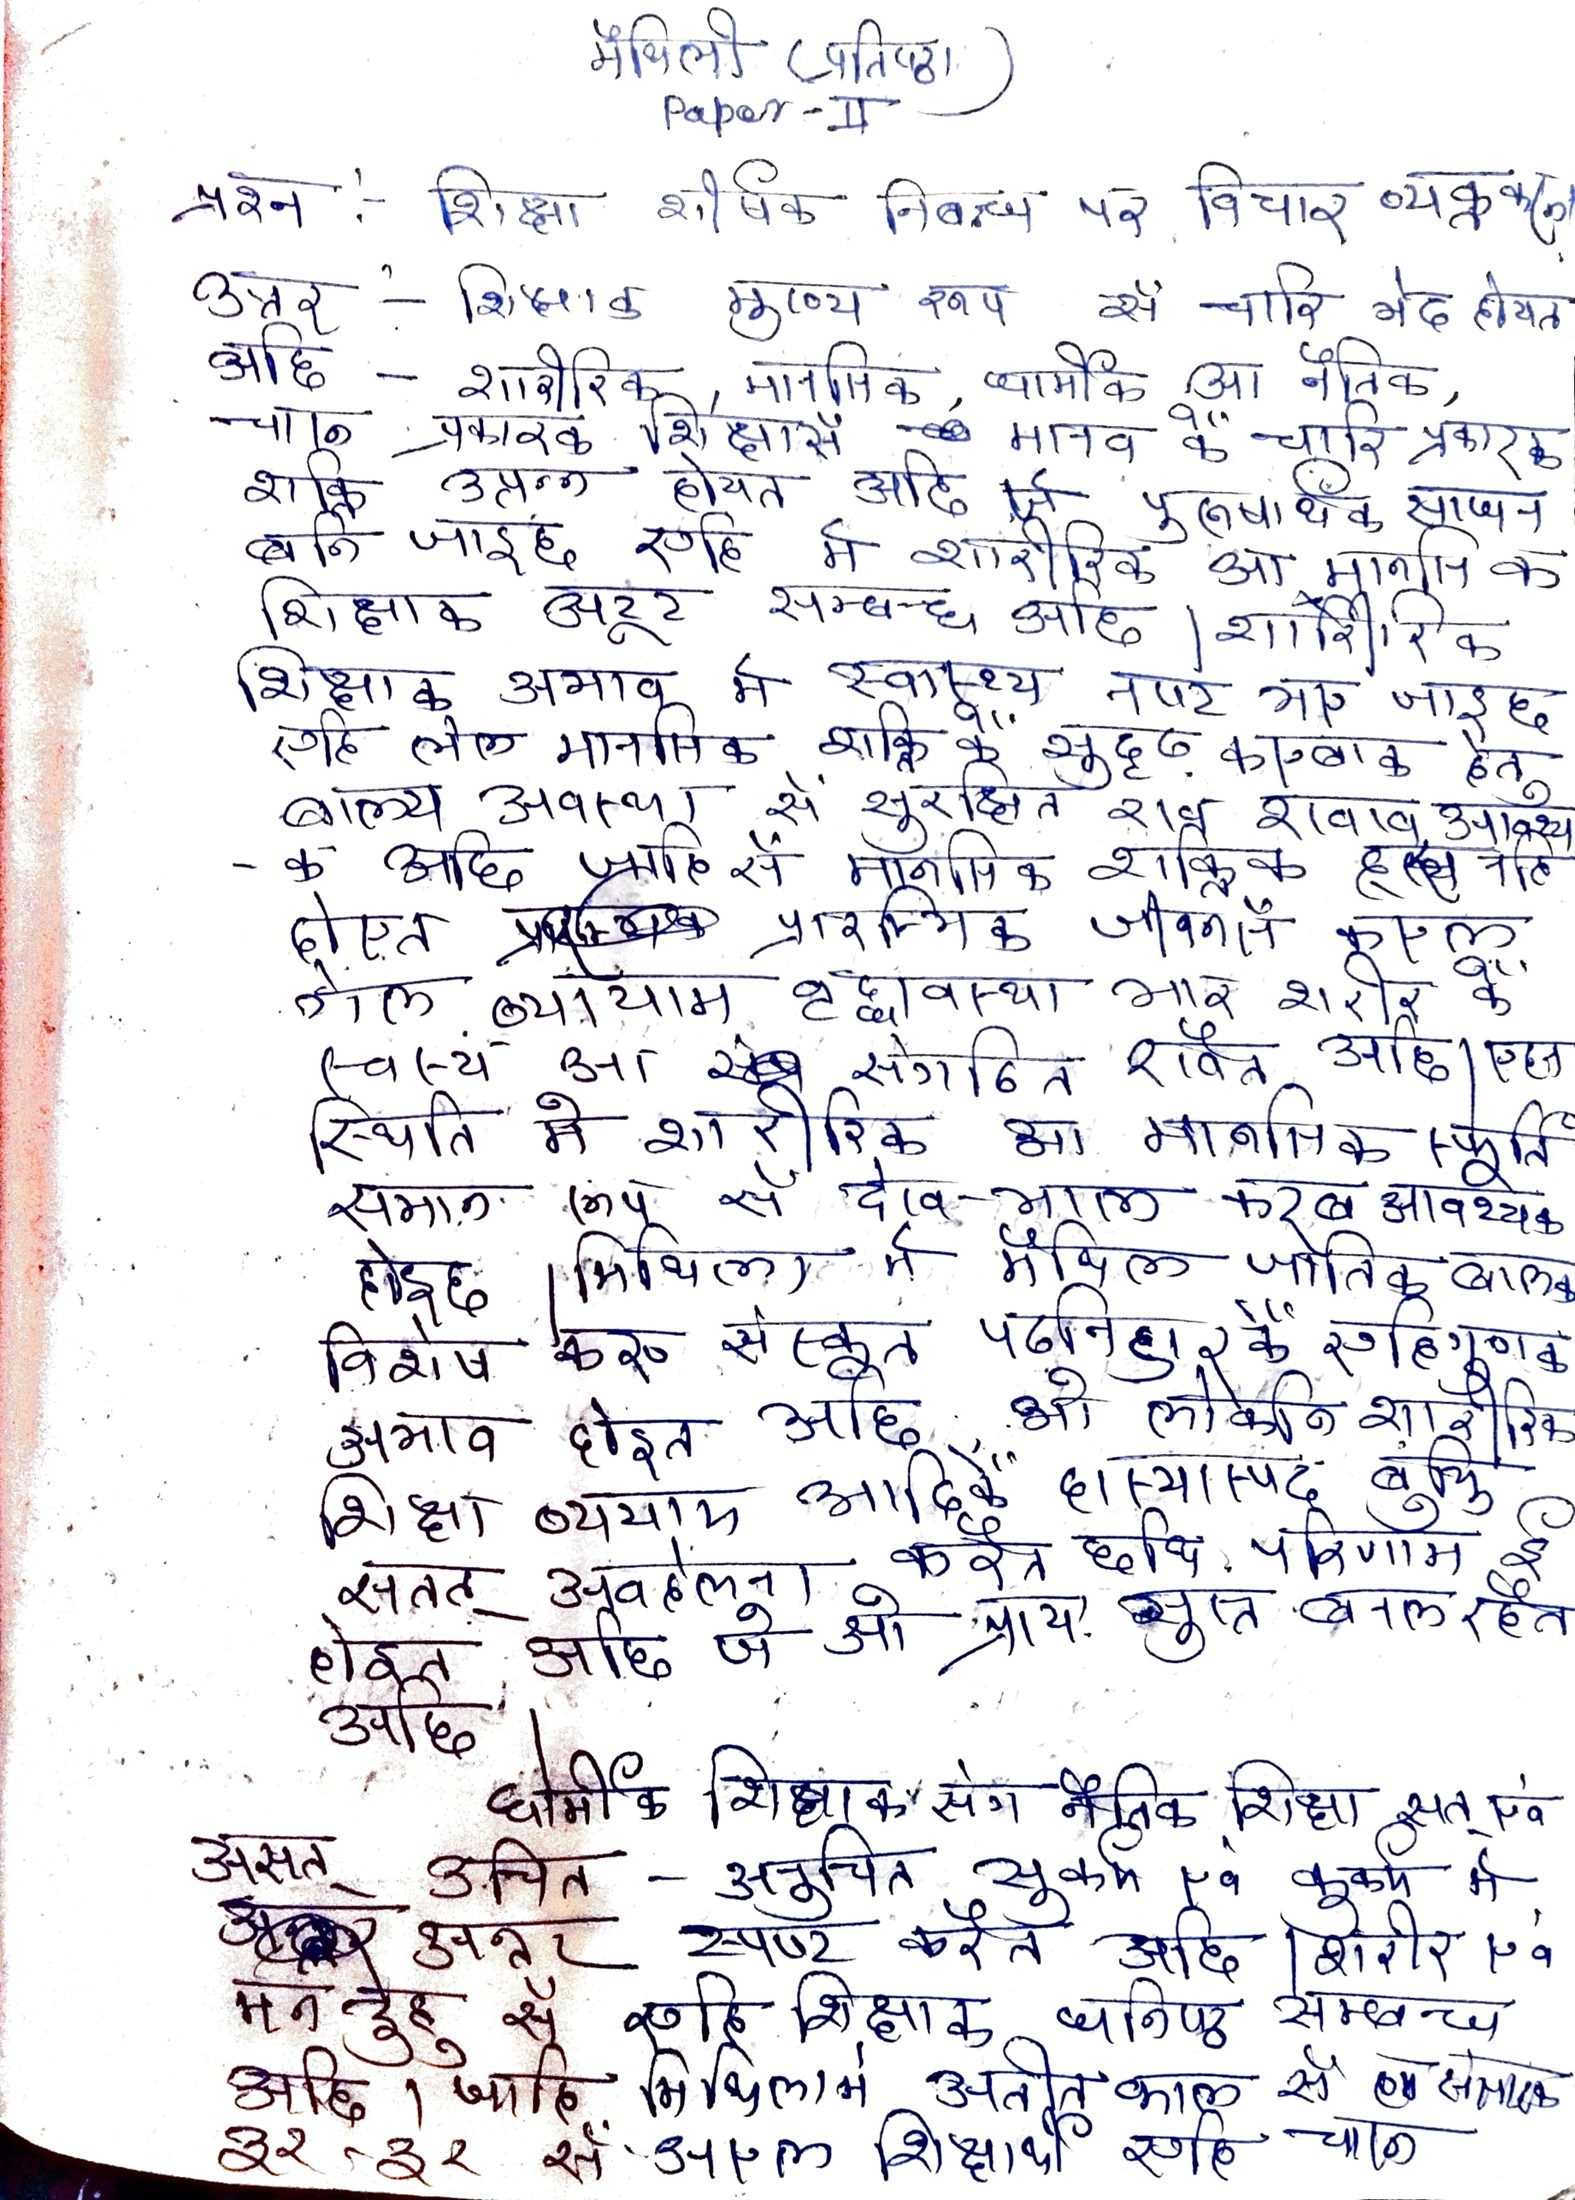 मैथिली (प्रतिष्ठा)
Paper - II
प्रश्न :- शिक्षा शीर्षक निबन्ध पर विचार व्यक्त करू।
उत्तर :- शिक्षाक मुख्य रूप सँ चारि भेद होयत
अछि - शारीरिक, मानसिक, धार्मिक आ नैतिक,
चारू प्रकारक शिक्षासँ मानव कें चारि प्रकारक
शक्ति उत्पन्न होयत अछि जे पुरूषार्थक साधन
बनि जाइछ एहि मे शारीरिक आ मानसिक
शिक्षाक अटूट सम्बन्ध अछि । शारीरिक
शिक्षाक अभाव मे स्वास्थ्य नष्ट भए जाइछ
एहि लेल मानसिक शक्ति कें सुदृढ़ करबाक हेतु
बाल्य अवस्था सँ सुरक्षित राखब आवश्य
- क अछि जाहि सँ मानसिक शक्तिक ह्रास नहि
होएत प्रारम्भिक जीवनसँ कएल
गेल व्यायाम वृद्धावस्था भरि शरीर कें
स्वस्थ आ संगठित रखैत अछि । एहन
स्थिति मे शारीरिक आ मानसिक स्फूर्ति
समान रूप सँ देख-भाल करब आवश्यक
होइछ । मिथिला मे मैथिल जातिक बालक
विशेष कए संस्कृत पढनिहार कें एहि गुणक
अभाव होइत अछि ओ लोकनि शारीरिक
शिक्षा व्ययाम आदिकें हास्यास्पद बुझि
सतत् अवहेलना करैत छथि. परिणाम ई
होइत अछि जे ओ प्राय: सुस्त बनल रहैत
अछि ।
धार्मिक शिक्षाक संग नैतिक शिक्षा सत् एवं
असत् उचित - अनुचित सुकर्म एवं कुकर्म मे
अन्तर स्पष्ट करैत अछि । शरीर एवं
मन दुहु सँ एहि शिक्षाक घनिष्ठ सम्बन्ध
अछि । जाहि मिथिलामे अतीत काल सँ संसारक
दूर - दूर सँ आएल शिक्षार्थी एहि चारू